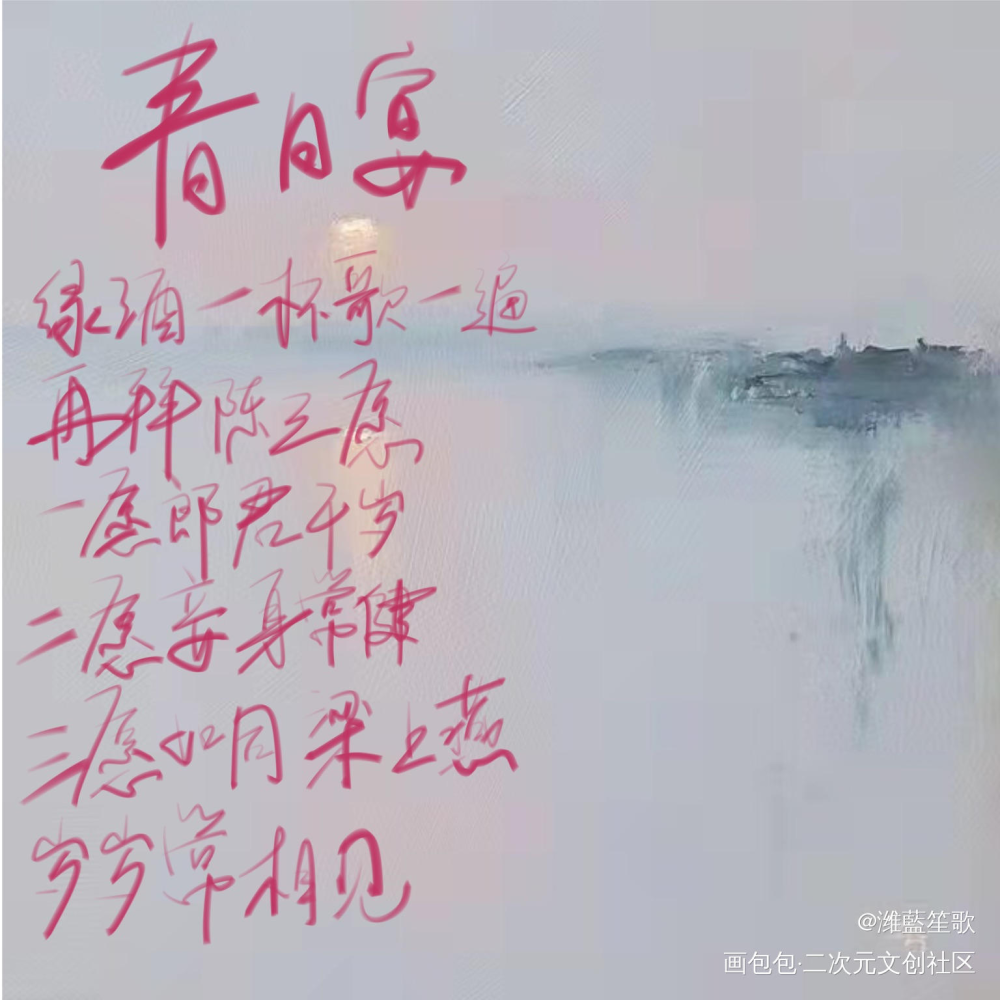 春日宴
绿酒一杯歌一遍
再拜陈三愿
一愿郎君千岁
二愿妾身常健
三愿如同梁上燕
岁岁常相见
@潍藍笙歌
画包包·二次元文创社区